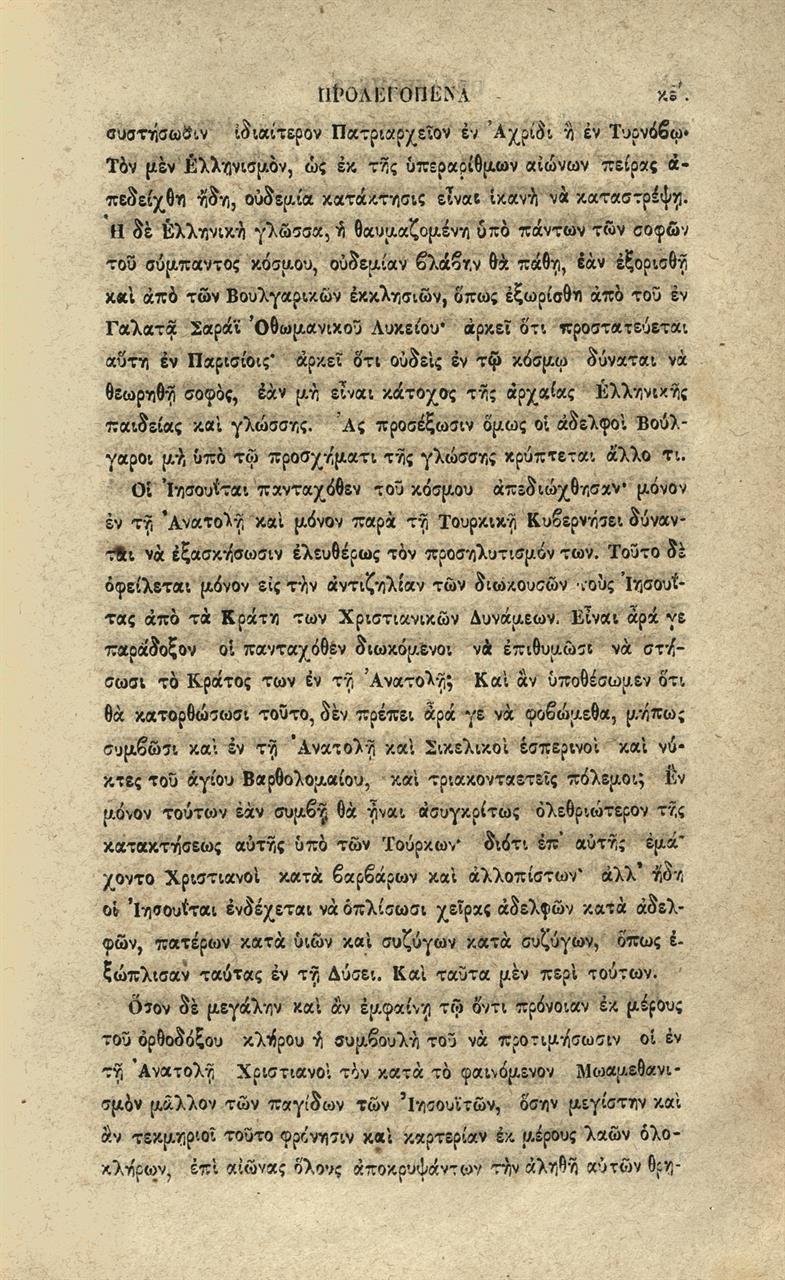 ΠΡΟΛΕΓΟΠΕΝΑ κε΄.
συστήσωσιν ἰδιαίτερον Πατριαρχεῖον ἐν Ἀχρίδι ἢ ἐν Τυρνόβῳ·
Τὸν μὲν Ἑλληνισμὸν, ὡς ἐκ τῆς ὑπεραρίθμων αἰώνων πείρας ἀ-
πεδείχθη ἤδη, οὐδεμία κατάκτησις εἶναι ἱκανὴ νὰ καταστρέψῃ.
Ἡ δὲ Ἑλληνικὴ γλῶσσα, ἡ θαυμαζομένη ὑπὸ πάντων τῶν σοφῶν
τοῦ σύμπαντος κόσμου, οὐδεμίαν βλάβην θὰ πάθῃ, ἐὰν ἐξορισθῇ
καὶ ἀπὸ τῶν Βουλγαρικῶν ἐκκλησιῶν, ὅπως ἐξωρίσθη ἀπὸ τοῦ ἐν
Γαλατᾷ Σαράϊ Ὀθωμανικοῦ Λυκείου· ἀρκεῖ ὅτι προστατεύεται
αὕτη ἐν Παρισίοις· ἀρκεῖ ὅτι οὐδεὶς ἐν τῷ κόσμῳ δύναται νὰ
θεωρηθῇ σοφὸς, ἐὰν μὴ εἶναι κάτοχος τῆς ἀρχαίας Ἑλληνικῆς
παιδείας καὶ γλώσσης. Ἂς προσέξωσιν ὅμως οἱ ἀδελφοὶ Βούλ-
γαροι μὴ ὑπὸ τῷ προσχήματι τῆς γλώσσης κρύπτεται ἄλλο τι.
Οἱ Ἰησουῖται πανταχόθεν τοῦ κόσμου ἀπεδιώχθησαν· μόνον
ἐν τῇ Ἀνατολῇ καὶ μόνον παρὰ τῇ Τουρκικῇ Κυβερνήσει δύναν-
ται νὰ ἐξασκήσωσιν ἐλευθέρως τὸν προσηλυτισμόν των. Τοῦτο δὲ
ὀφείλεται μόνον εἰς τὴν ἀντιζηλίαν τῶν διωκουσῶν τοὺς Ἰησουΐ-
τας ἀπὸ τὰ Κράτη των Χριστιανικῶν Δυνάμεων. Εἶναι ἆρά γε
παράδοξον οἱ πανταχόθεν διωκόμενοι νὰ ἐπιθυμῶσι νὰ στή-
σωσι τὸ Κράτος των ἐν τῇ Ἀνατολῇ; Καὶ ἂν ὑποθέσωμεν ὅτι
θὰ κατορθώσωσι τοῦτο, δὲν πρέπει ἆρά γε νὰ φοβώμεθα, μήπως
συμβῶσι καὶ ἐν τῇ Ἀνατολῇ καὶ Σικελικοὶ ἑσπερινοὶ καὶ νύ-
κτες τοῦ ἁγίου Βαρθολομαίου, καὶ τριακονταετεῖς πόλεμοι; Ἓν
μόνον τούτων ἐὰν συμβῇ θὰ ἦναι ἀσυγκρίτως ὀλεθριώτερον τῆς
κατακτήσεως αὐτῆς ὑπὸ τῶν Τούρκων· διότι ἐπ' αὐτῆς ἐμά-
χοντο Χριστιανοὶ κατὰ βαρβάρων καὶ ἀλλοπίστων· ἀλλ' ἤδη
οἱ Ἰησουῖται ἐνδέχεται νὰ ὁπλίσωσι χεῖρας ἀδελφῶν κατὰ ἀδελ-
φῶν, πατέρων κατὰ υἱῶν καὶ συζύγων κατὰ συζύγων, ὅπως ἐ-
ξώπλισαν ταύτας ἐν τῇ Δύσει. Καὶ ταῦτα μὲν περὶ τούτων.
Ὅσον δὲ μεγάλην καὶ ἂν ἐμφαίνῃ τῷ ὄντι πρόνοιαν ἐκ μέρους
τοῦ ὀρθοδόξου κλήρου ἡ συμβουλὴ τοῦ νὰ προτιμήσωσιν οἱ ἐν
τῇ Ἀνατολῇ Χριστιανοὶ τὸν κατὰ τὸ φαινόμενον Μωαμεθανι-
σμὸν μᾶλλον τῶν παγίδων τῶν Ἰησουϊτῶν, ὅσην μεγίστην καὶ
ἂν τεκμηριοῖ τοῦτο φρόνησιν καὶ καρτερίαν ἐκ μέρους λαῶν ὁλο-
κλήρων, ἐπὶ αἰῶνας ὅλους ἀποκρυψάντων τὴν ἀληθῆ αὐτῶν θρη-